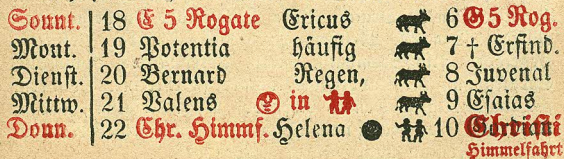 Sonnt. 18 E 5 Rogate Ericus 6 G 5 Rog.
Mont. 19 Potentia häufig 7 † Erfind.
Dienst. 20 Bernard Regen, 8 Juvenal
Mittw. 21 Valens in 9 Esaias
Donn. 22 Chr. Himmf. Helena 10 Christi
Himmelfahrt